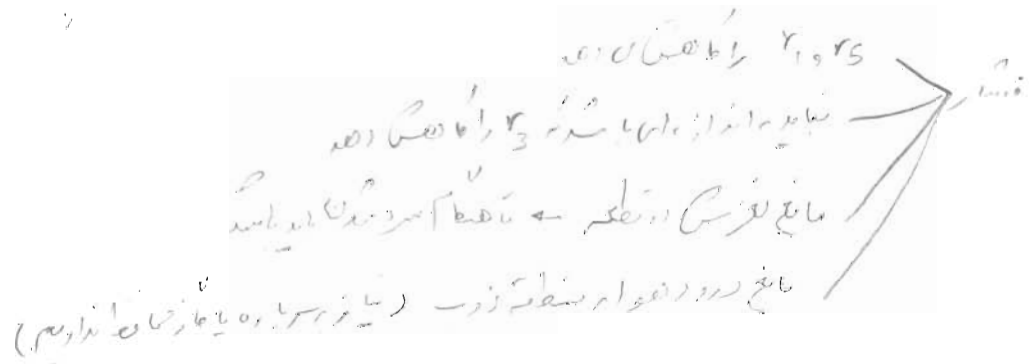 فشار
r₁ و r₅ را کاهش می دهد
نباید به اندازه ای باشد که r₃ را کاهش دهد
مانع لغزش دو قطعه ← تا هنگام سرد شدن باید باشد
مانع ورود هوا به منطقه ذوب (نیاز به سرباره یا گاز محافظ نداریم)